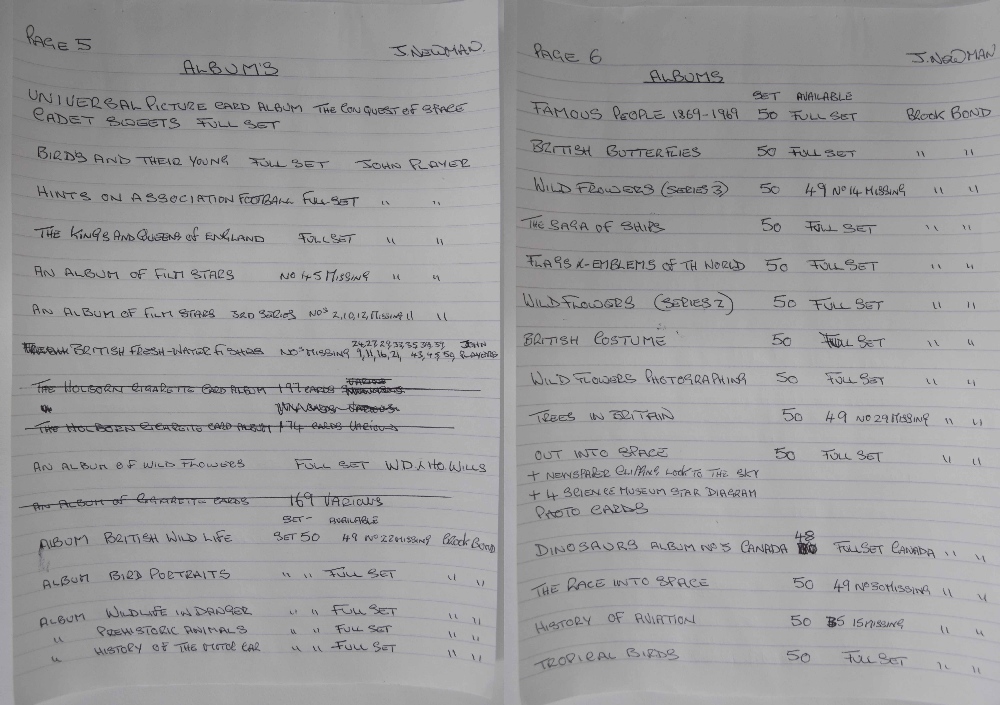 PAGE 5 J. NEWMAN.
ALBUM'S
UNIVERSAL PICTURE CARD ALBUM THE CONQUEST OF SPACE
CADET SWEETS FULL SET
BIRDS AND THEIR YOUNG FULL SET JOHN PLAYER
HINTS ON ASSOCIATION FOOTBALL FULL SET " "
THE KINGS AND QUEENS OF ENGLAND FULL SET " "
AN ALBUM OF FILM STARS NO 45 MISSING " "
AN ALBUM OF FILM STARS 3RD SERIES NOS 2,10,12, MISSING " "
BRITISH FRESH-WATER FISHES NOS MISSING 9, 11, 16, 21, JOHN PLAYERS
THE HOLBORN CIGARETTE CARD ALBUM 197 CARDS VARIOUS
THE HOLBORN CIGARETTE CARD ALBUM 174 CARDS VARIOUS
AN ALBUM OF WILD FLOWERS FULL SET WD & HO. WILLS
AN ALBUM OF CIGARETTE CARDS 169 VARIOUS
SET - AVAILABLE
ALBUM BRITISH WILD LIFE SET 50 49 NO 22 MISSING Brook Bond
ALBUM BIRD PORTRAITS " " FULL SET " "
ALBUM WILDLIFE IN DANGER " " FULL SET " "
" PREHISTORIC ANIMALS " " FULL SET " "
" HISTORY OF THE MOTOR CAR " " FULL SET " "
PAGE 6 J. NEWMAN
ALBUMS
SET AVAILABLE
FAMOUS PEOPLE 1869-1969 50 FULL SET Brook BOND
BRITISH BUTTERFLIES 50 FULL SET " "
WILD FLOWERS (SERIES 3) 50 49 NO 14 MISSING " "
THE SAGA OF SHIPS 50 FULL SET " "
FLAGS & EMBLEMS OF TH WORLD 50 FULL SET " "
WILD FLOWERS (SERIES 2) 50 FULL SET " "
BRITISH COSTUME 50 FULL SET " "
WILD FLOWERS PHOTOGRAPHING 50 FULL SET " "
TREES IN BRITAIN 50 49 NO 29 MISSING " "
OUT INTO SPACE 50 FULL SET " "
+ NEWSPAPER CLIPPING LOOK TO THE SKY
+ 4 SCIENCE MUSEUM STAR DIAGRAM
PHOTO CARDS
DINOSAURS ALBUM NO 5 CANADA 48 FULL SET CANADA " "
THE RACE INTO SPACE 50 49 NO 50 MISSING " "
HISTORY OF AVIATION 50 35 15 MISSING " "
TROPICAL BIRDS 50 FULL SET " "